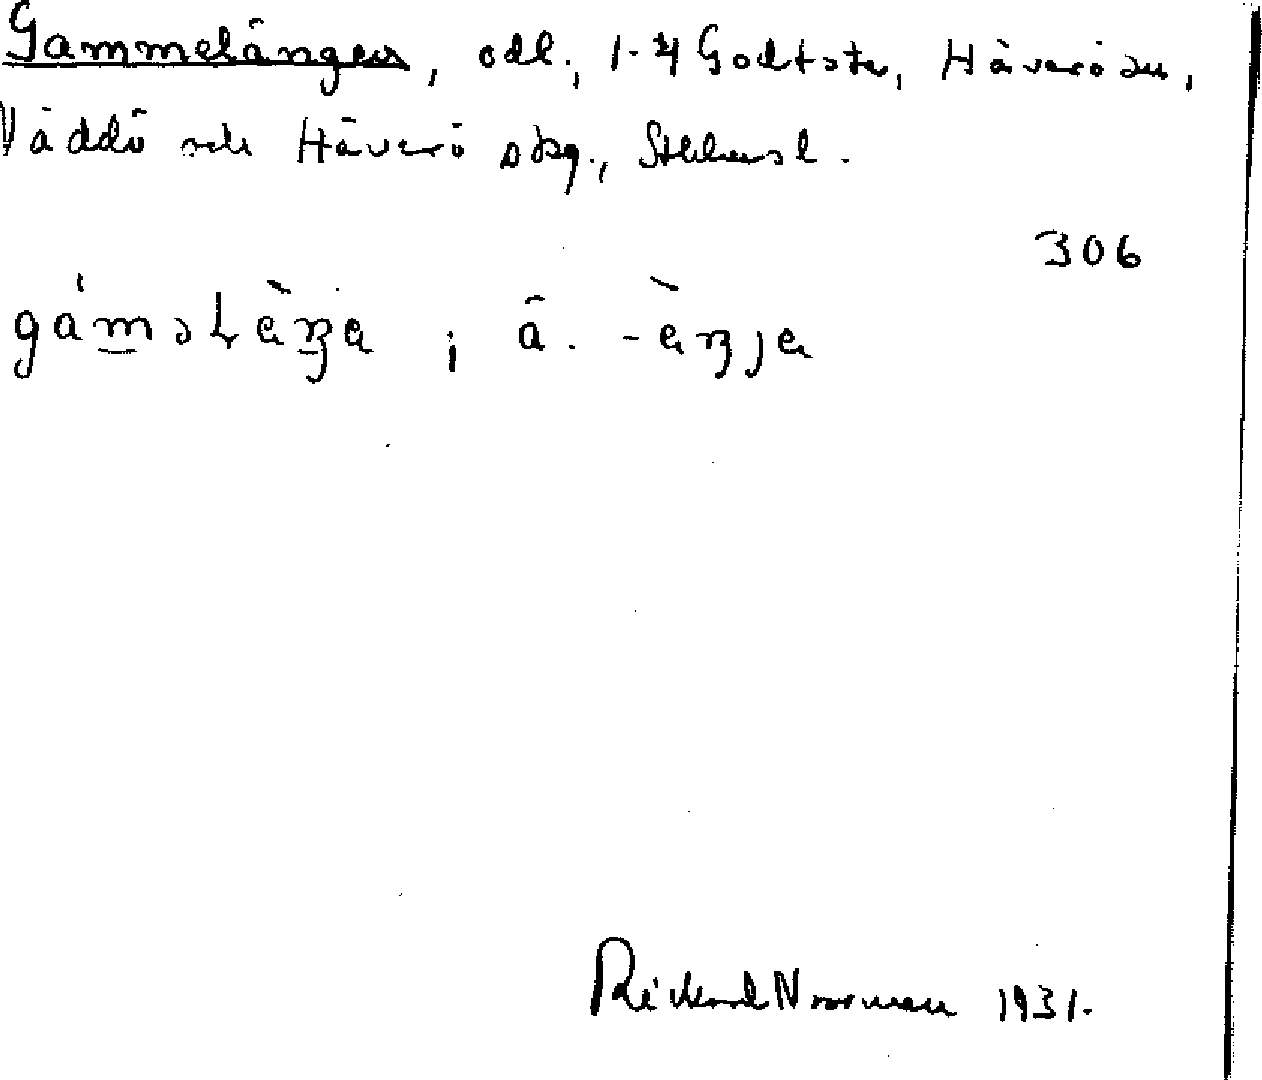 Gammelängen, odl., 1-4 Godtste, Häverö sn,
Väddö och Häverö skg., Sthlmsl.
306
gámǝɫèŋa ; ä. -èŋja
Rickard Norman 1931.